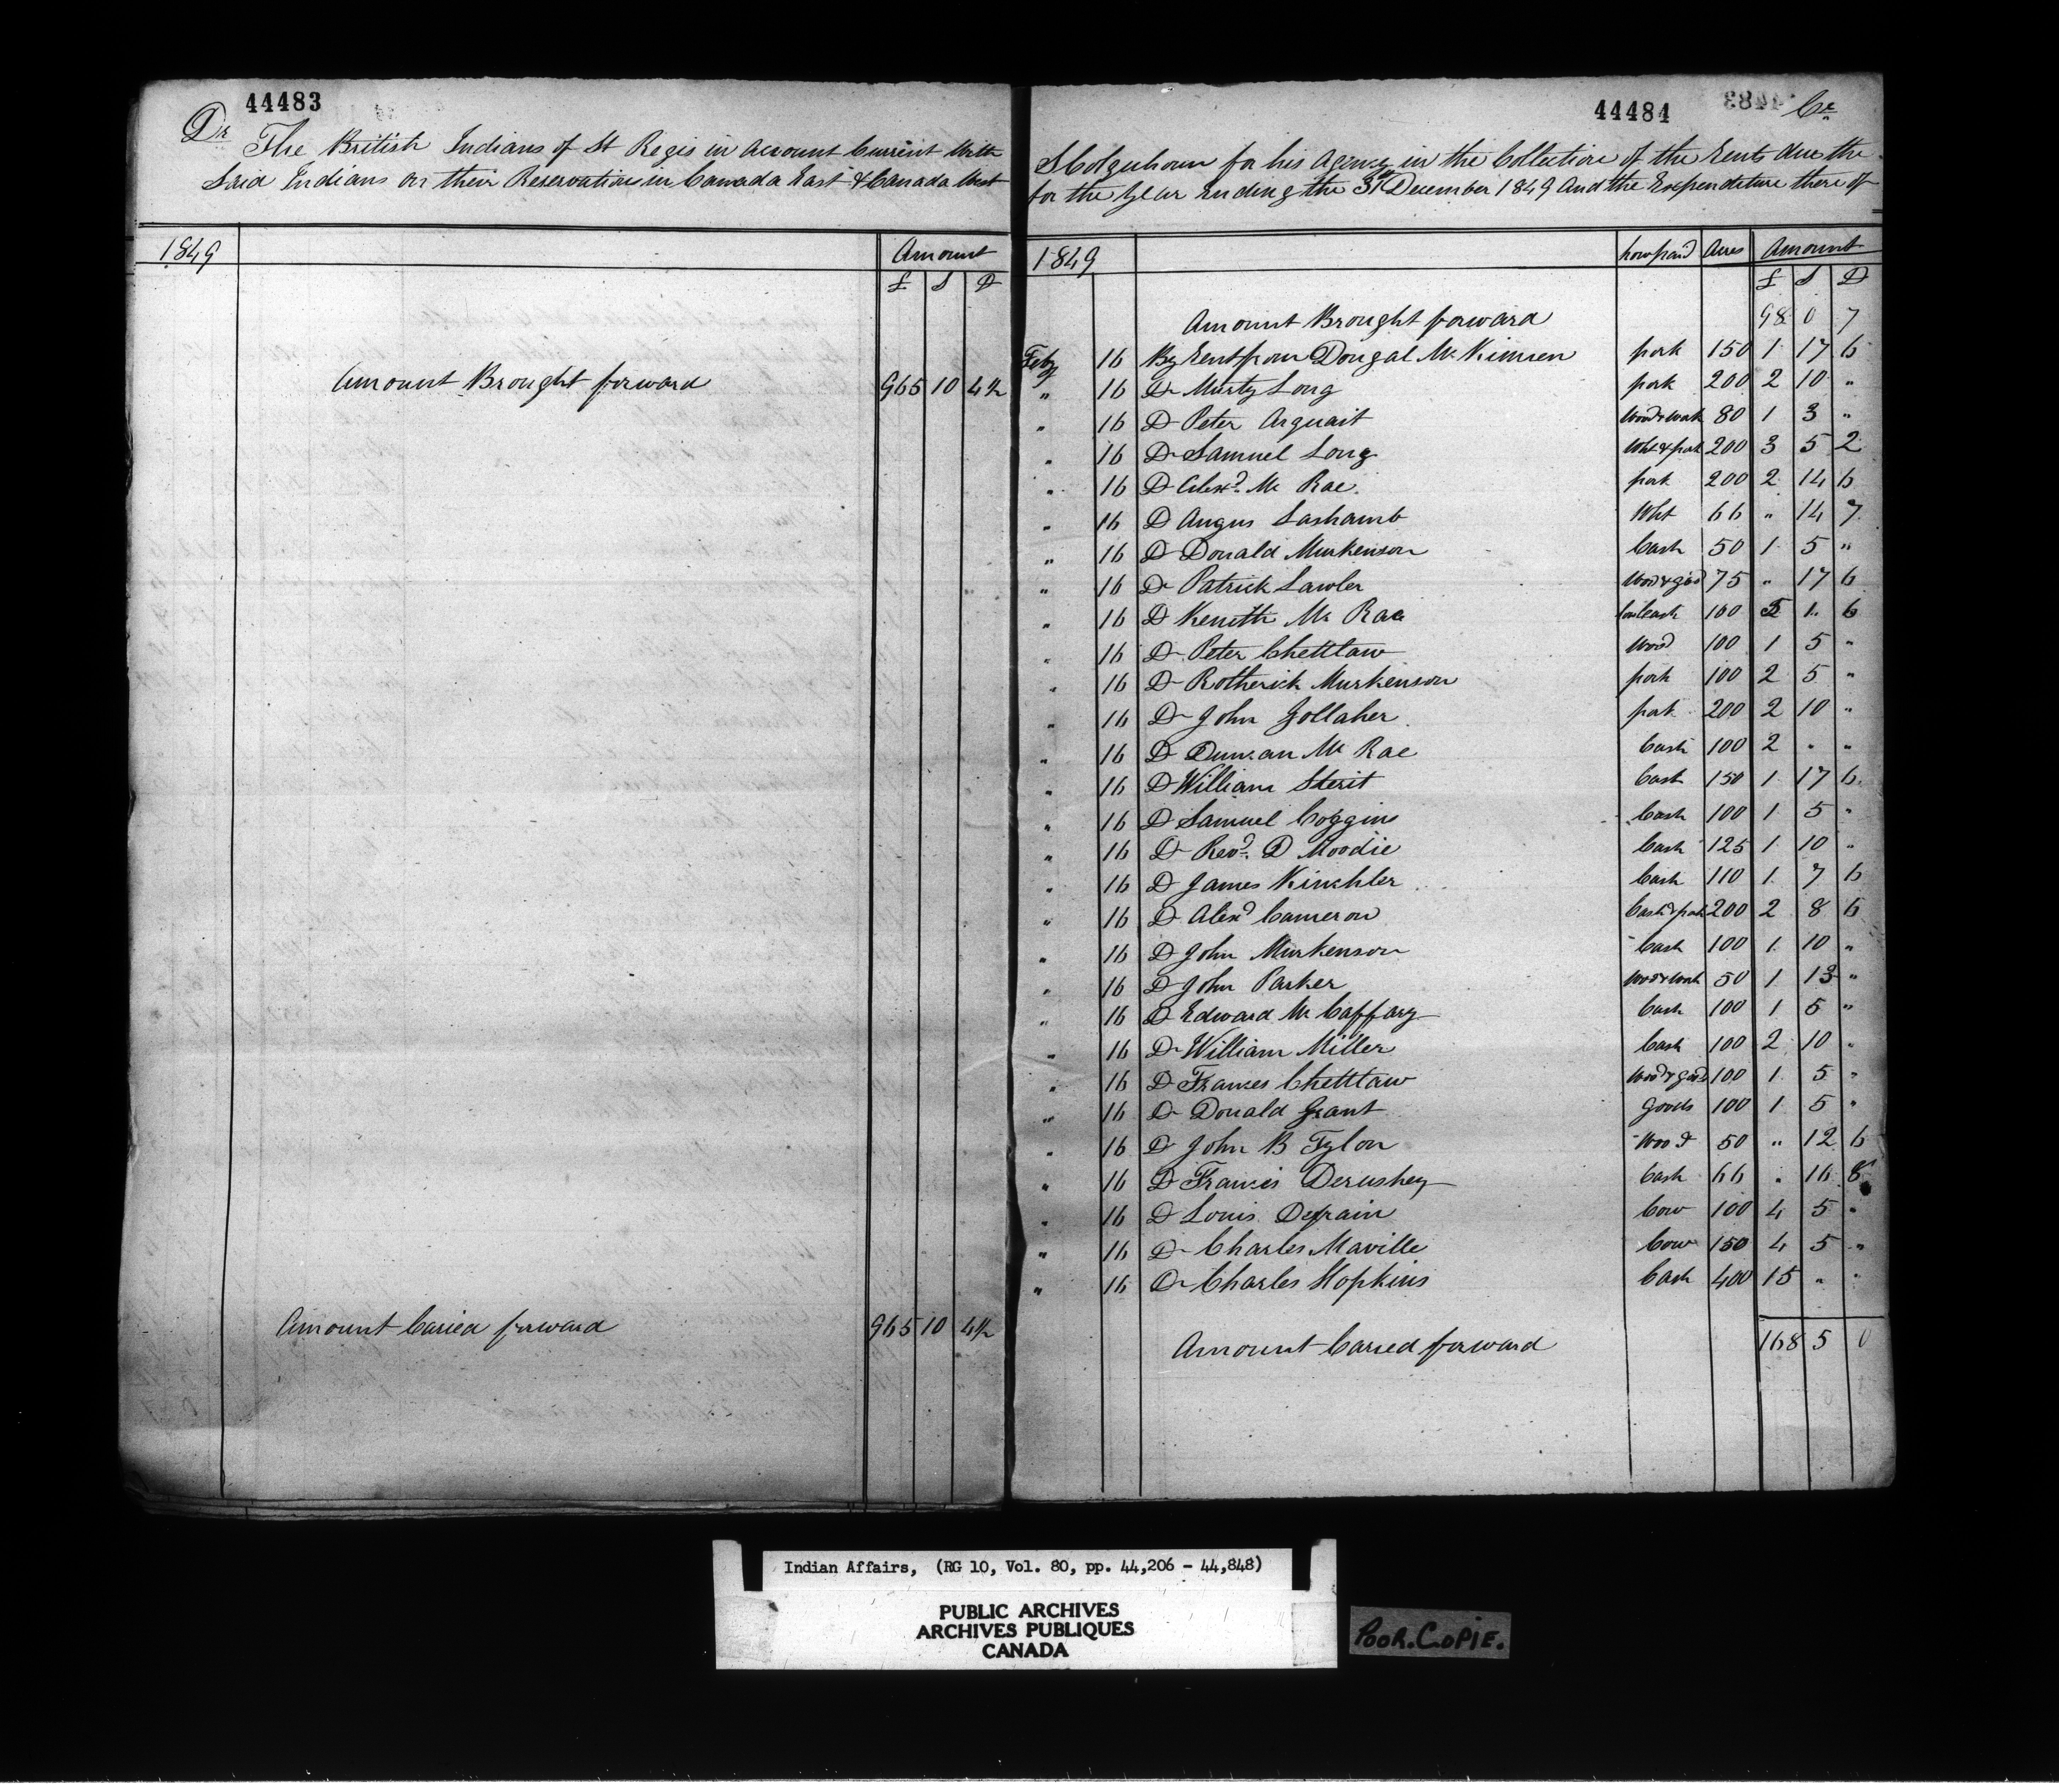 44483
Dr The British Indians of St Regis in Account Current With
Said Indians on their Reservation in Canada East & Canada West
1849 Amount
£ S D
Amount Brought forward 965 10 4½
Amount Caried forward 965 10 4½
44484 Cr
S Colquhoun for his Agency in the Collection of the Rents due the
for the Year Ending the 31st December 1849 And the Expenditure there of
1849 how paid Acres Amount
£ S D
Amount Brought forward 98 0 7
Feby 16 By Rent from Dougal Mc Kinnen pork 150 1 17 6
" 16 Do Murty Long pork 200 2 10 "
" 16 Do Peter Arquait Wood & Work 80 1 3 "
" 16 Do Samuel Long Wht & pork 200 3 5 2
" 16 Do Alexd. Mc Rae pork 200 2 14 6
" 16 Do Angus Lashamb Wht 66 " 14 7
" 16 Do Donald Murkenson Cash 50 1 5 "
" 16 Do Patrick Lawler 75 " 17 6
" 16 Do Kenith Mc Rae 100 5 1 6
" 16 Do Peter Chettlaw Wood 100 1 5 "
" 16 Do Rotherick Murkenson pork 100 2 5 "
" 16 Do John Gollaher pork 200 2 10 "
" 16 Do Duncan Mc Rae Cash 100 2 " "
" 16 Do William Sterit Cash 150 1 17 6
" 16 Do Samuel Coggins Cash 100 1 5 "
" 16 Do Revd. D Moodie Cash 125 1 10 "
" 16 Do James Kinchler Cash 110 1 7 6
" 16 Do Alexd Cameron Cash & pork 200 2 8 6
" 16 Do John Murkenson Cash 100 1 10 "
" 16 Do John Parker Wood & Work 50 1 13 "
" 16 Do Edward Mc Caffary Cash 100 1 5 "
" 16 Do William Miller Cash 100 2 10 "
" 16 Do Frances Chettlaw Wood & goods 100 1 5 "
" 16 Do Donald Grant goods 100 1 5 "
" 16 Do John B Tylon Wood 50 " 12 6
" 16 Do Francis Derushey Cash 66 " 16 8
" 16 Do Louis Deprain Cow 100 4 5 "
" 16 Do Charles Maville Cow 150 4 5 "
" 16 Do Charles Hopkins Cash 400 15 " "
Amount Carred forward 168 5 0
Indian Affairs, (RG 10, Vol. 80, pp. 44,206 - 44,848)
PUBLIC ARCHIVES
ARCHIVES PUBLIQUES
CANADA
POOR.COPIE.